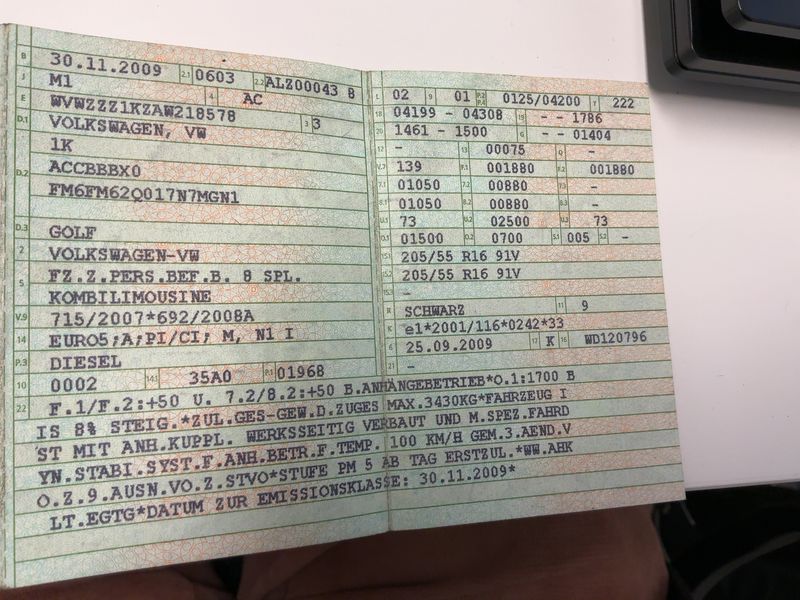 B 30.11.2009 2.1 0603 2.2 ALZ00043 8
J M1 4 AC
E WVWZZZ1KZAW218578 3 3
D.1 VOLKSWAGEN, VW
1K
D.2 ACCBBBX0
FM6FM62Q017N7MGN1
D.3 GOLF
2 VOLKSWAGEN-VW
5 FZ.Z.PERS.BEF.B. 8 SPL.
KOMBILIMOUSINE
V.9 715/2007*692/2008A
14 EURO5;A;PI/CI; M, N1 I
P.3 DIESEL
10 0002 14.1 35A0 P.1 01968
02 9 01 P.2 P.4 0125/04200 T 222
18 04199 - 04308 19 - - 1786
20 1461 - 1500 G - - 01404
12 - 13 00075 Q -
V.7 139 F.1 001880 F.2 001880
7.1 01050 7.2 00880 7.3 -
8.1 01050 8.2 00880 8.3 -
U.1 73 U.2 02500 U.3 73
O.1 01500 O.2 0700 S.1 005 S.2 -
15.1 205/55 R16 91V
15.2 205/55 R16 91V
15.3 -
R SCHWARZ 11 9
K e1*2001/116*0242*33
6 25.09.2009 17 K 16 WD120796
21 -
22 F.1/F.2:+50 U. 7.2/8.2:+50 B.ANHÄNGEBETRIEB*O.1:1700 B
IS 8% STEIG.*ZUL.GES-GEW.D.ZUGES MAX.3430KG*FAHRZEUG I
ST MIT ANH.KUPPL. WERKSSEITIG VERBAUT UND M.SPEZ.FAHRD
YN.STABI.SYST.F.ANH.BETR.F.TEMP. 100 KM/H GEM.3.AEND.V
O.Z.9.AUSN.VO.Z.STVO*STUFE PM 5 AB TAG ERSTZUL.*WW.AHK
LT.EGTG*DATUM ZUR EMISSIONSKLASSE: 30.11.2009*